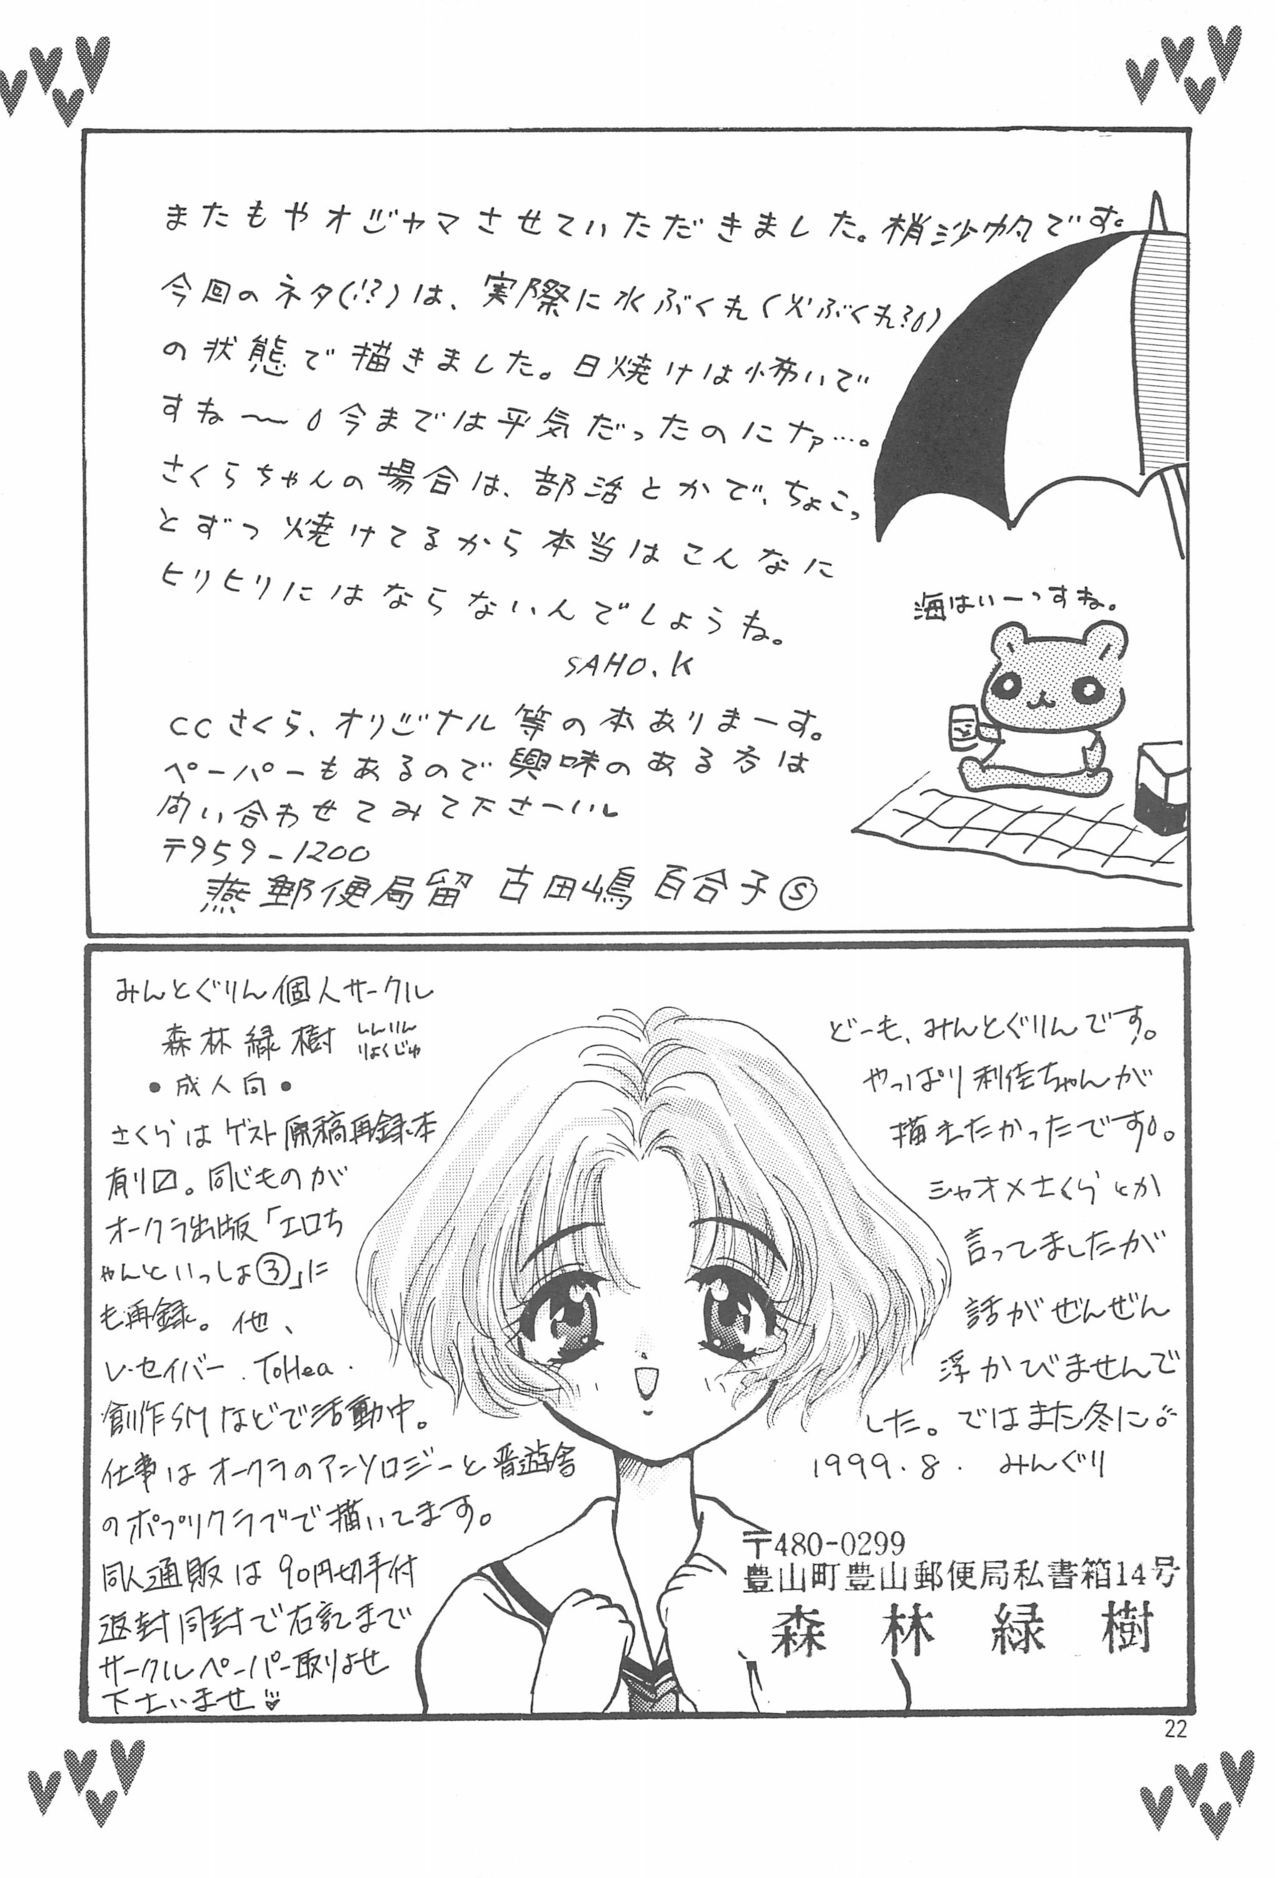 またもやオジャマさせていただきました。梢沙帆です。
今回のネタ(!?)は、実際に水ぶくれ(火ぶくれ?)
の状態で描きました。日焼けは怖いで
すね〜 今までは平気だったのにナァ…。
さくらちゃんの場合は、部活とかで、ちょこっ
とずつ焼けてるから本当はこんなに
ヒリヒリにはならないんでしょうね。
SAHO.K
CCさくら、オリジナル等の本ありまーす。
ペーパーもあるので興味のある方は
問い合わせてみて下さーいし
〒959-1200
燕郵便局留 古田嶋百合子Ⓢ
海はいーっすね。
みんとぐりん個人サークル
森林緑樹 しんりん
りょくじゅ
•成人向•
さくらはゲスト原稿再録本
有り〼。同じものが
オークラ出版「エロち
ゃんといっしょ③」に
も再録。他、
レ・セイバー.ToHea.
創作SMなどで活動中。
仕事はオークラのアンソロジーと晋遊舎
のポプリクラブで描いてます。
同人通販は90円切手付
返封同封で右記まで
サークルペーパー取りよせ
下さいませ
どーも、みんとぐりんです。
やっぱり利佳ちゃんが
描きたかったです。
シャオ×さくらとか
言ってましたが
話がぜんぜん
浮かびませんで
した。ではまた冬に
1999.8. みんぐり
〒480-0299
豊山町豊山郵便局私書箱14号
森林緑樹
22